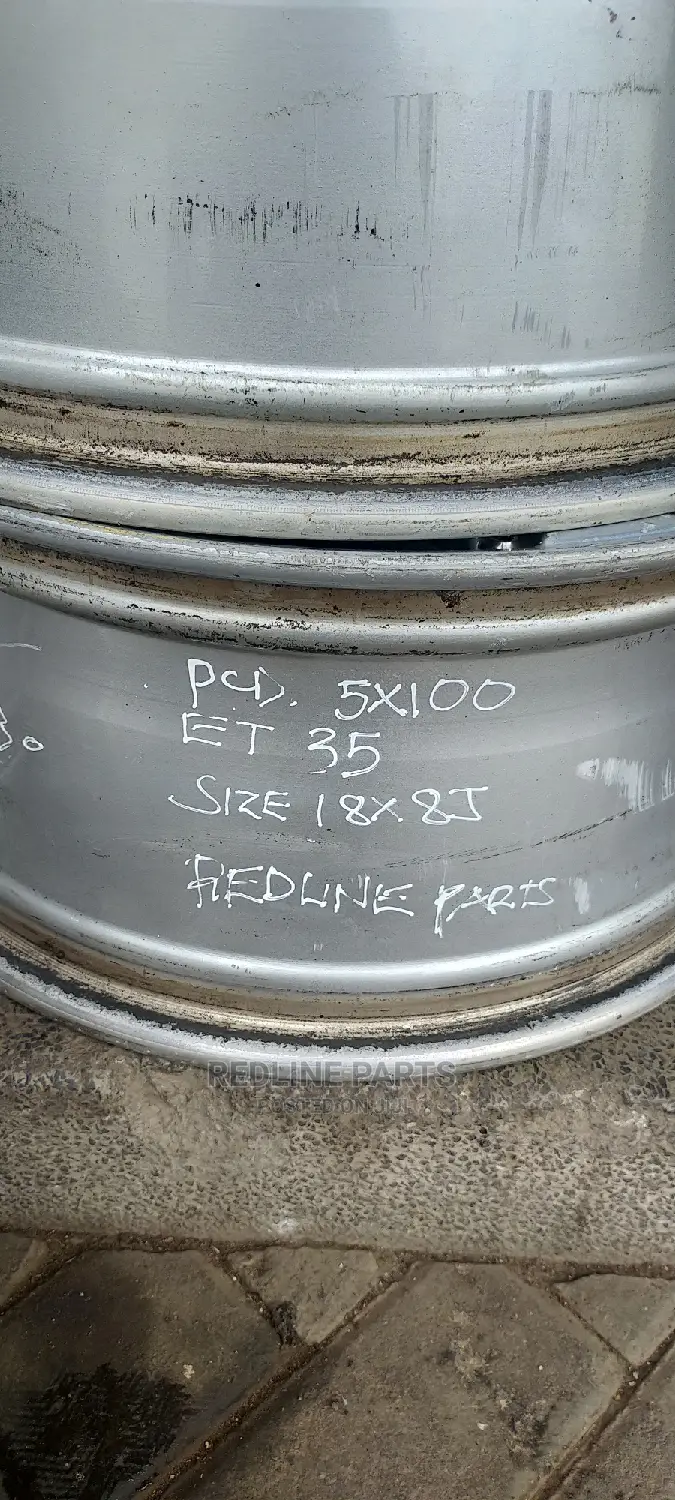 PCD. 5X100
ET 35
SIZE 18X8J
REDLINE PARTS
REDLINE PARTS
POSTED ON JIJI